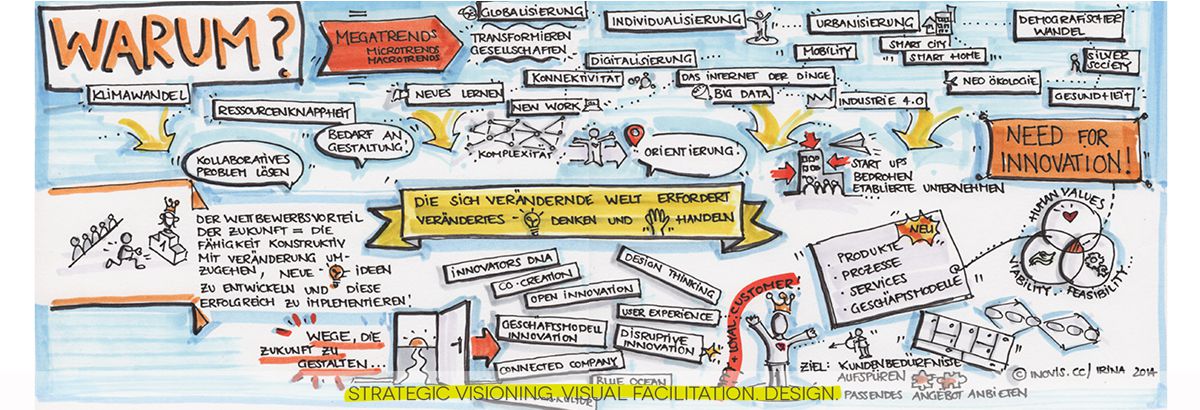 WARUM?
MEGATRENDS
MICROTRENDS
MACROTRENDS
GLOBALISIERUNG
TRANSFORMIEREN
GESELLSCHAFTEN
INDIVIDUALISIERUNG
URBANISIERUNG
SMART CITY
SMART HOME
DEMOGRAFISCHER
WANDEL
MOBILITY
DIGITALISIERUNG
SILVER
SOCIETY
KONNEKTIVITÄT
DAS INTERNET DER DINGE
BIG DATA
NEO ÖKOLOGIE
KLIMAWANDEL
RESSOURCENKNAPPHEIT
NEUES LERNEN
NEW WORK
INDUSTRIE 4.0
GESUNDHEIT
BEDARF AN
GESTALTUNG!
KOLLABORATIVES
PROBLEM LÖSEN
KOMPLEXITÄT
ORIENTIERUNG!
START UPS
BEDROHEN
ETABLIERTE UNTERNEHMEN
NEED FOR
INNOVATION!
DIE SICH VERÄNDERNDE WELT ERFORDERT
VERÄNDERTES DENKEN UND HANDELN
DER WETTBEWERBSVORTEIL
DER ZUKUNFT = DIE
FÄHIGKEIT KONSTRUKTIV
MIT VERÄNDERUNG UM-
ZUGEHEN, NEUE IDEEN
ZU ENTWICKELN UND DIESE
ERFOLGREICH ZU IMPLEMENTIEREN!
1
WEGE, DIE
ZUKUNFT ZU
GESTALTEN...
INNOVATORS DNA
CO-CREATION
OPEN INNOVATION
DESIGN THINKING
USER EXPERIENCE
GESCHÄFTSMODELL
INNOVATION
DISRUPTIVE
INNOVATION
CONNECTED COMPANY
BLUE OCEAN
+ LOYAL CUSTOMER
NEU
PRODUKTE
PROZESSE
• SERVICES
• GESCHÄFTSMODELLE
HUMAN VALUES
VIABILITY
FEASIBILITY
ZIEL: KUNDENBEDÜRFNISSE
AUFSPÜREN
PASSENDES ANGEBOT ANBIETEN
© INOVIS.CC/ IRINA 2014
STRATEGIC VISIONING. VISUAL FACILITATION. DESIGN.